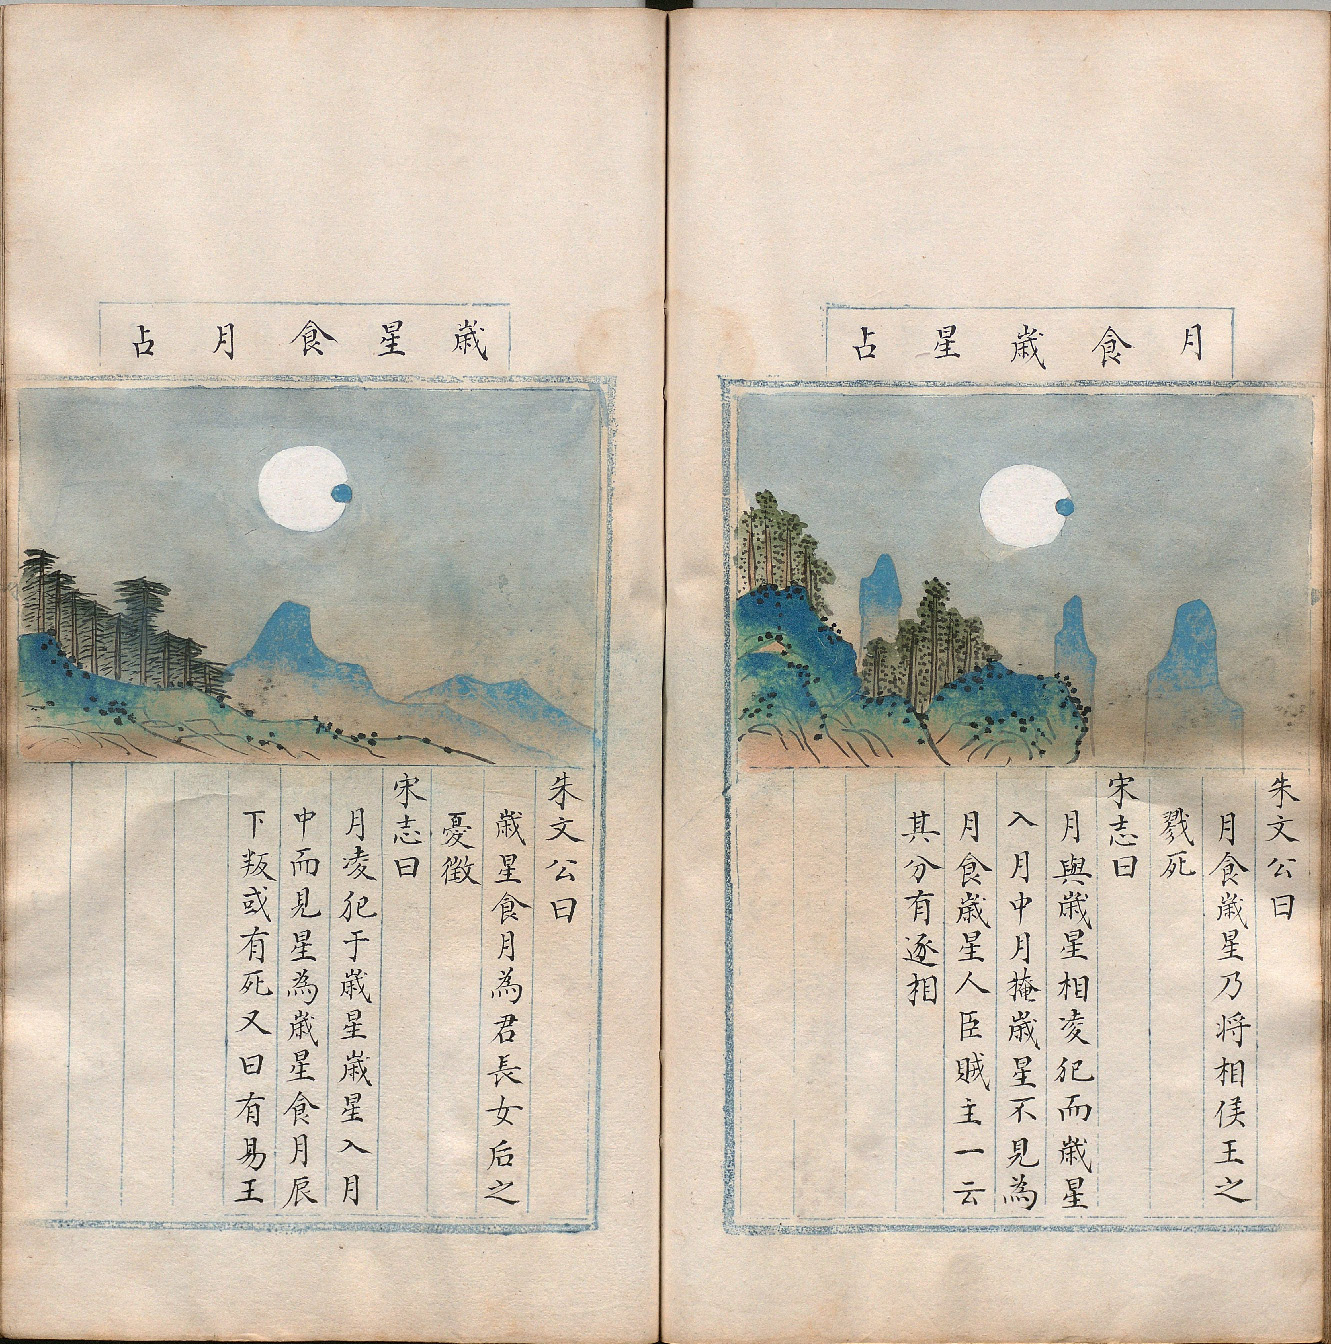 月食歳星占
朱文公曰
月食歳星乃将相侯王之
戮死
宋志曰
月與歳星相凌犯而歳星
入月中月掩歳星不見為
月食歳星人臣賊主一云
其分有逐相
歳星食月占
朱文公曰
歳星食月為君長女后之
憂徴
宋志曰
月凌犯于歳星歳星入月
中而見星為歳星食月辰
下叛或有死又曰有易王